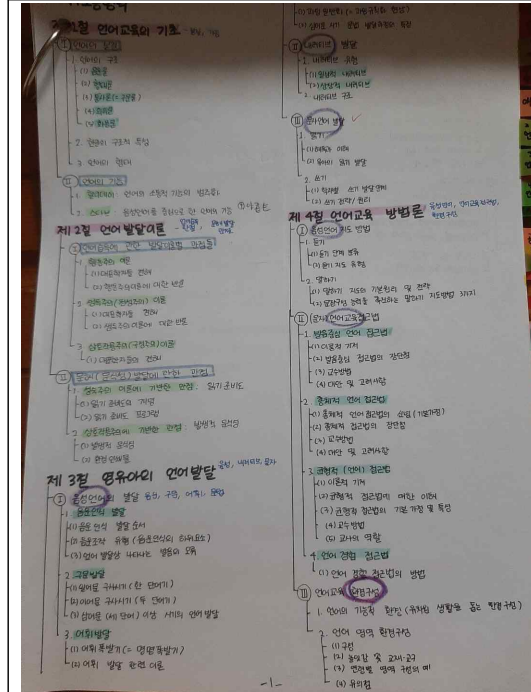 제1절 언어교육의 기초
Ⅰ 언어의
1. 언어의 구조
(1) 음운론
(2) 형태론
(3) 통사론 (=구문론)
(4) 의미론
(5) 화용론
2. 한글의 구조적 특징
3. 언어의 형태
Ⅱ 언어의 기능
1. 할리데이: 언어의 소통적 기능의 범주
2. 음성언어를 중심으로 한 언어의 기능
제 2절 언어발달이론
Ⅰ 언어습득에 관한 발달이론별 관점들
1. 행동주의 이론
(1) 대표학자들 견해
(2) 행동주의이론에 대한 반론
2. 생득주의 이론
(1) 대표학자들 견해
(2) 생득주의이론에 대한 반론
3. 상호작용주의(구성주의)이론
(1) 대표학자들의 견해
Ⅱ 문해(문식성) 발달에 관한 관점
1. 성숙주의 이론에 기반한 관점: 읽기 준비도
(1) 읽기 준비도의 개념
(2) 읽기 준비도 프로그램
2. 상호작용주의에 기반한 관점: 발생적 문식성
(1) 발생적 문식성
(2) 환경 인쇄물
제 3절 영유아의 언어발달 음성, 내러티브, 문자
Ⅰ 음성언어의 발달 음운, 구문, 어휘, 문법
1. 음운인식 발달
(1) 음운 인식 발달 순서
(2) 음운조작 유형 (음운인식의 하위요소)
(3) 언어 발달상 나타나는 발음의 오류
2. 구문발달
(1) 일어문 구사시기 (한 단어기)
(2) 이어문 구사시기 (두 단어기)
(3) 삼어문 (세 단어) 이상 시기의 언어발달
3. 어휘발달
(1) 어휘폭발기 (= 명명폭발기)
(2) 어휘 발달 관련 이론
Ⅱ 내러티브 발달
1. 내러티브 유형
(1) 일상적 내러티브
(2) 상상적 내러티브
2. 내러티브 구조
Ⅲ 문자언어 발달
1. 읽기
(1) 이해
(2) 유아의 읽기 발달
2. 쓰기
(1) 학자별 쓰기 발달단계
(2) 쓰기 전략/원리
제 4절 언어교육 방법론
Ⅰ 음성언어 지도 방법
1. 듣기
(1) 듣기 단계 분류
(2) 듣기 지도 유형
2. 말하기
(1) 말하기 지도의 기본원리 및 전략
(2) 문장구성 능력을 촉진하는 말하기 지도방법 3가지
Ⅱ (문자)언어교육접근법
1. 발음중심 언어 접근법
(1) 이론적 기저
(2) 발음중심 접근법의 장단점
(3) 교수방법
(4) 대안 및 고려사항
2. 총체적 언어 접근법
(1) 총체적 언어접근법의 신념 (기본가정)
(2) 총체적 접근법의 장단점
(3) 교수방법
(4) 대안 및 고려사항
3. 균형적 (언어) 접근법
(1) 이론적 기저
(2) 균형적 접근법에 대한 이해
(3) 균형적 접근법의 기본 가정 및 특성
(4) 교수방법
(5) 교사의 역할
4. 언어 경험 접근법
(1) 언어 경험 접근법의 방법
Ⅲ 언어교육 환경구성
1. 언어의 기능적 환경 (유치원 생활을 돕는 환경구성)
2. 언어 영역 환경구성
(1) 구성
(2) 놀잇감 및 교재·교구
(3) 연령별 영역 구성의 예
(4) 유의점
-1-